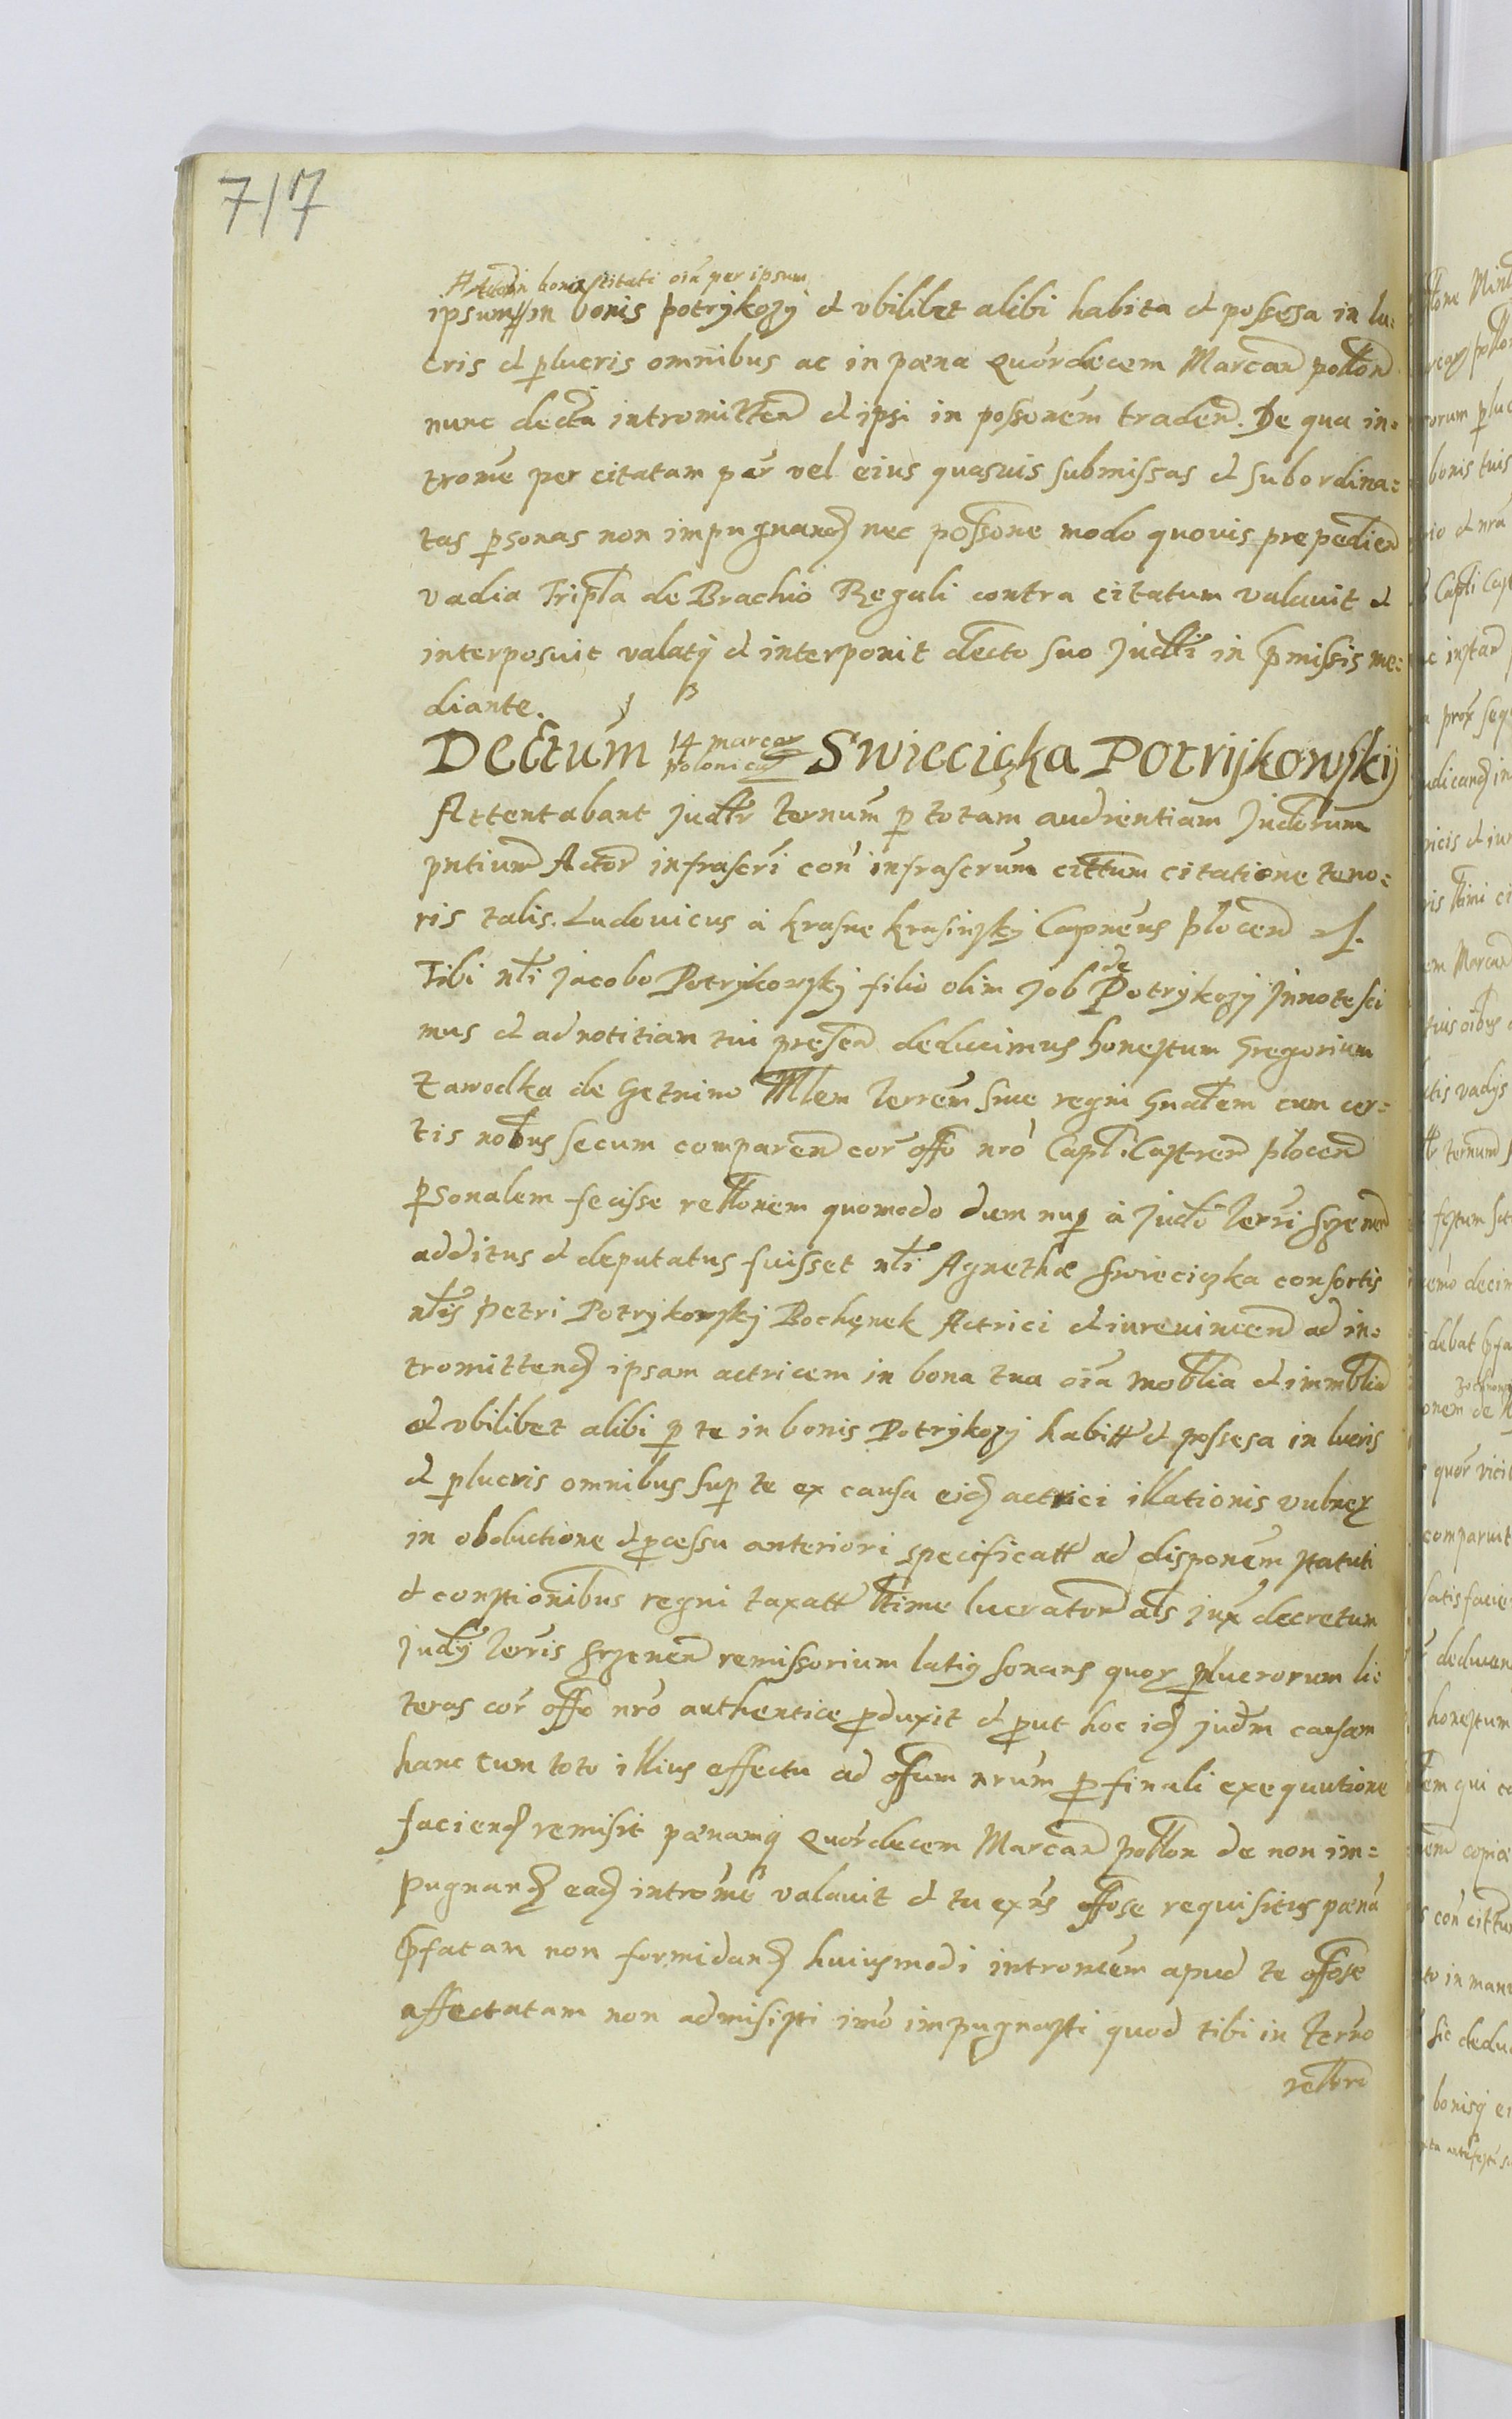 7/17
in bonis citati oīa per ipsum
ipsum in bonis Potrykozy et vbilibet alibi habita et possessa in lu=
cris et plucris omnibus ac in pœna Quordecem Marcar pollon
nunc decta intromitten et ipsi in possonem traden. De qua in=
trome per citatam par vel eius quasuis submissas et subordina=
tas psonas non impugnand nec possone modo quouis prepedien
vadia Tripla de Brachio Regali contra citatum valauit et
interposuit valatq et interponit decto suo Judlī in pmissis me=
diante.
Dectum 14 marcar polonical Swieciczka Potrijkowskij
Attentabant Judlr ternum p totam audientiam Judiorum
pntium Actor infrascri con infrascrum cittum citatione teno=
ris talis. Ludouicus à Krasne Krasinskj Capneus Plocen
Tibi nlī Jacobo Potrykowskj filio olim Job de Potrykozy Innotesci
mus et ad notitiam tui presen deducimus honestum Gregorium
Zawodka de Getnino Mlem terrem siue regni Gnalem cum cer=
tis nobus secum comparen cor offo nro Capli Castren Plocen
psonalem fecisse rellonem quomodo dum nup à Judo terri Srzenen
additus et deputatus fuisset nlī Agnethæ Swieciczka consortis
nlis Petri Potrykowskj Bochenek Actrici et iureuincen ad in=
tromittend ipsam actricem in bona tua oīa moblia et immblia
et vbilibet alibi p te in bonis Potrykozy habitt et possesa in lucris
et plucris omnibus sup te ex causa eid actrici illationis vulner
in obductione et pcessu anteriori specificatt ad disponem statuti
et constionibus regni taxatt lltime lucrator als jux decretum
judij terris Srzenen remissorium latiq sonans quor plucrorum li=
teras cor offo nro authentice pduxit et put hoc id judm causam
hanc cum toto illius effectu ad offum nrum p finali exequutione
faciend remisit pœnamq Quordecem Marcar pollon de non im=
pugnand ead intromne valauit et tu exns offose requisitus pœna
pfatam non formidand huiusmodi intromem apud te offose
affectatam non admisisti imo impugnasti quod tibi in terno